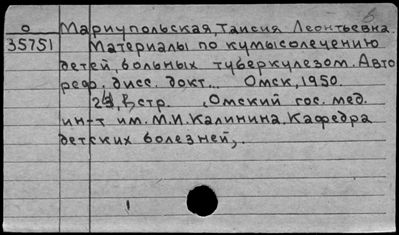 о Мариупольская, Таисия Леонтьевна.
35751 Материалы по кумысолечению
детей, больных туберкулезом. Авто
реф. дисс. докт... Омск, 1950.
стр. , Омский гос. мед.
ин-т им. М.И. Калинина. Кафедра
детских болезней,.